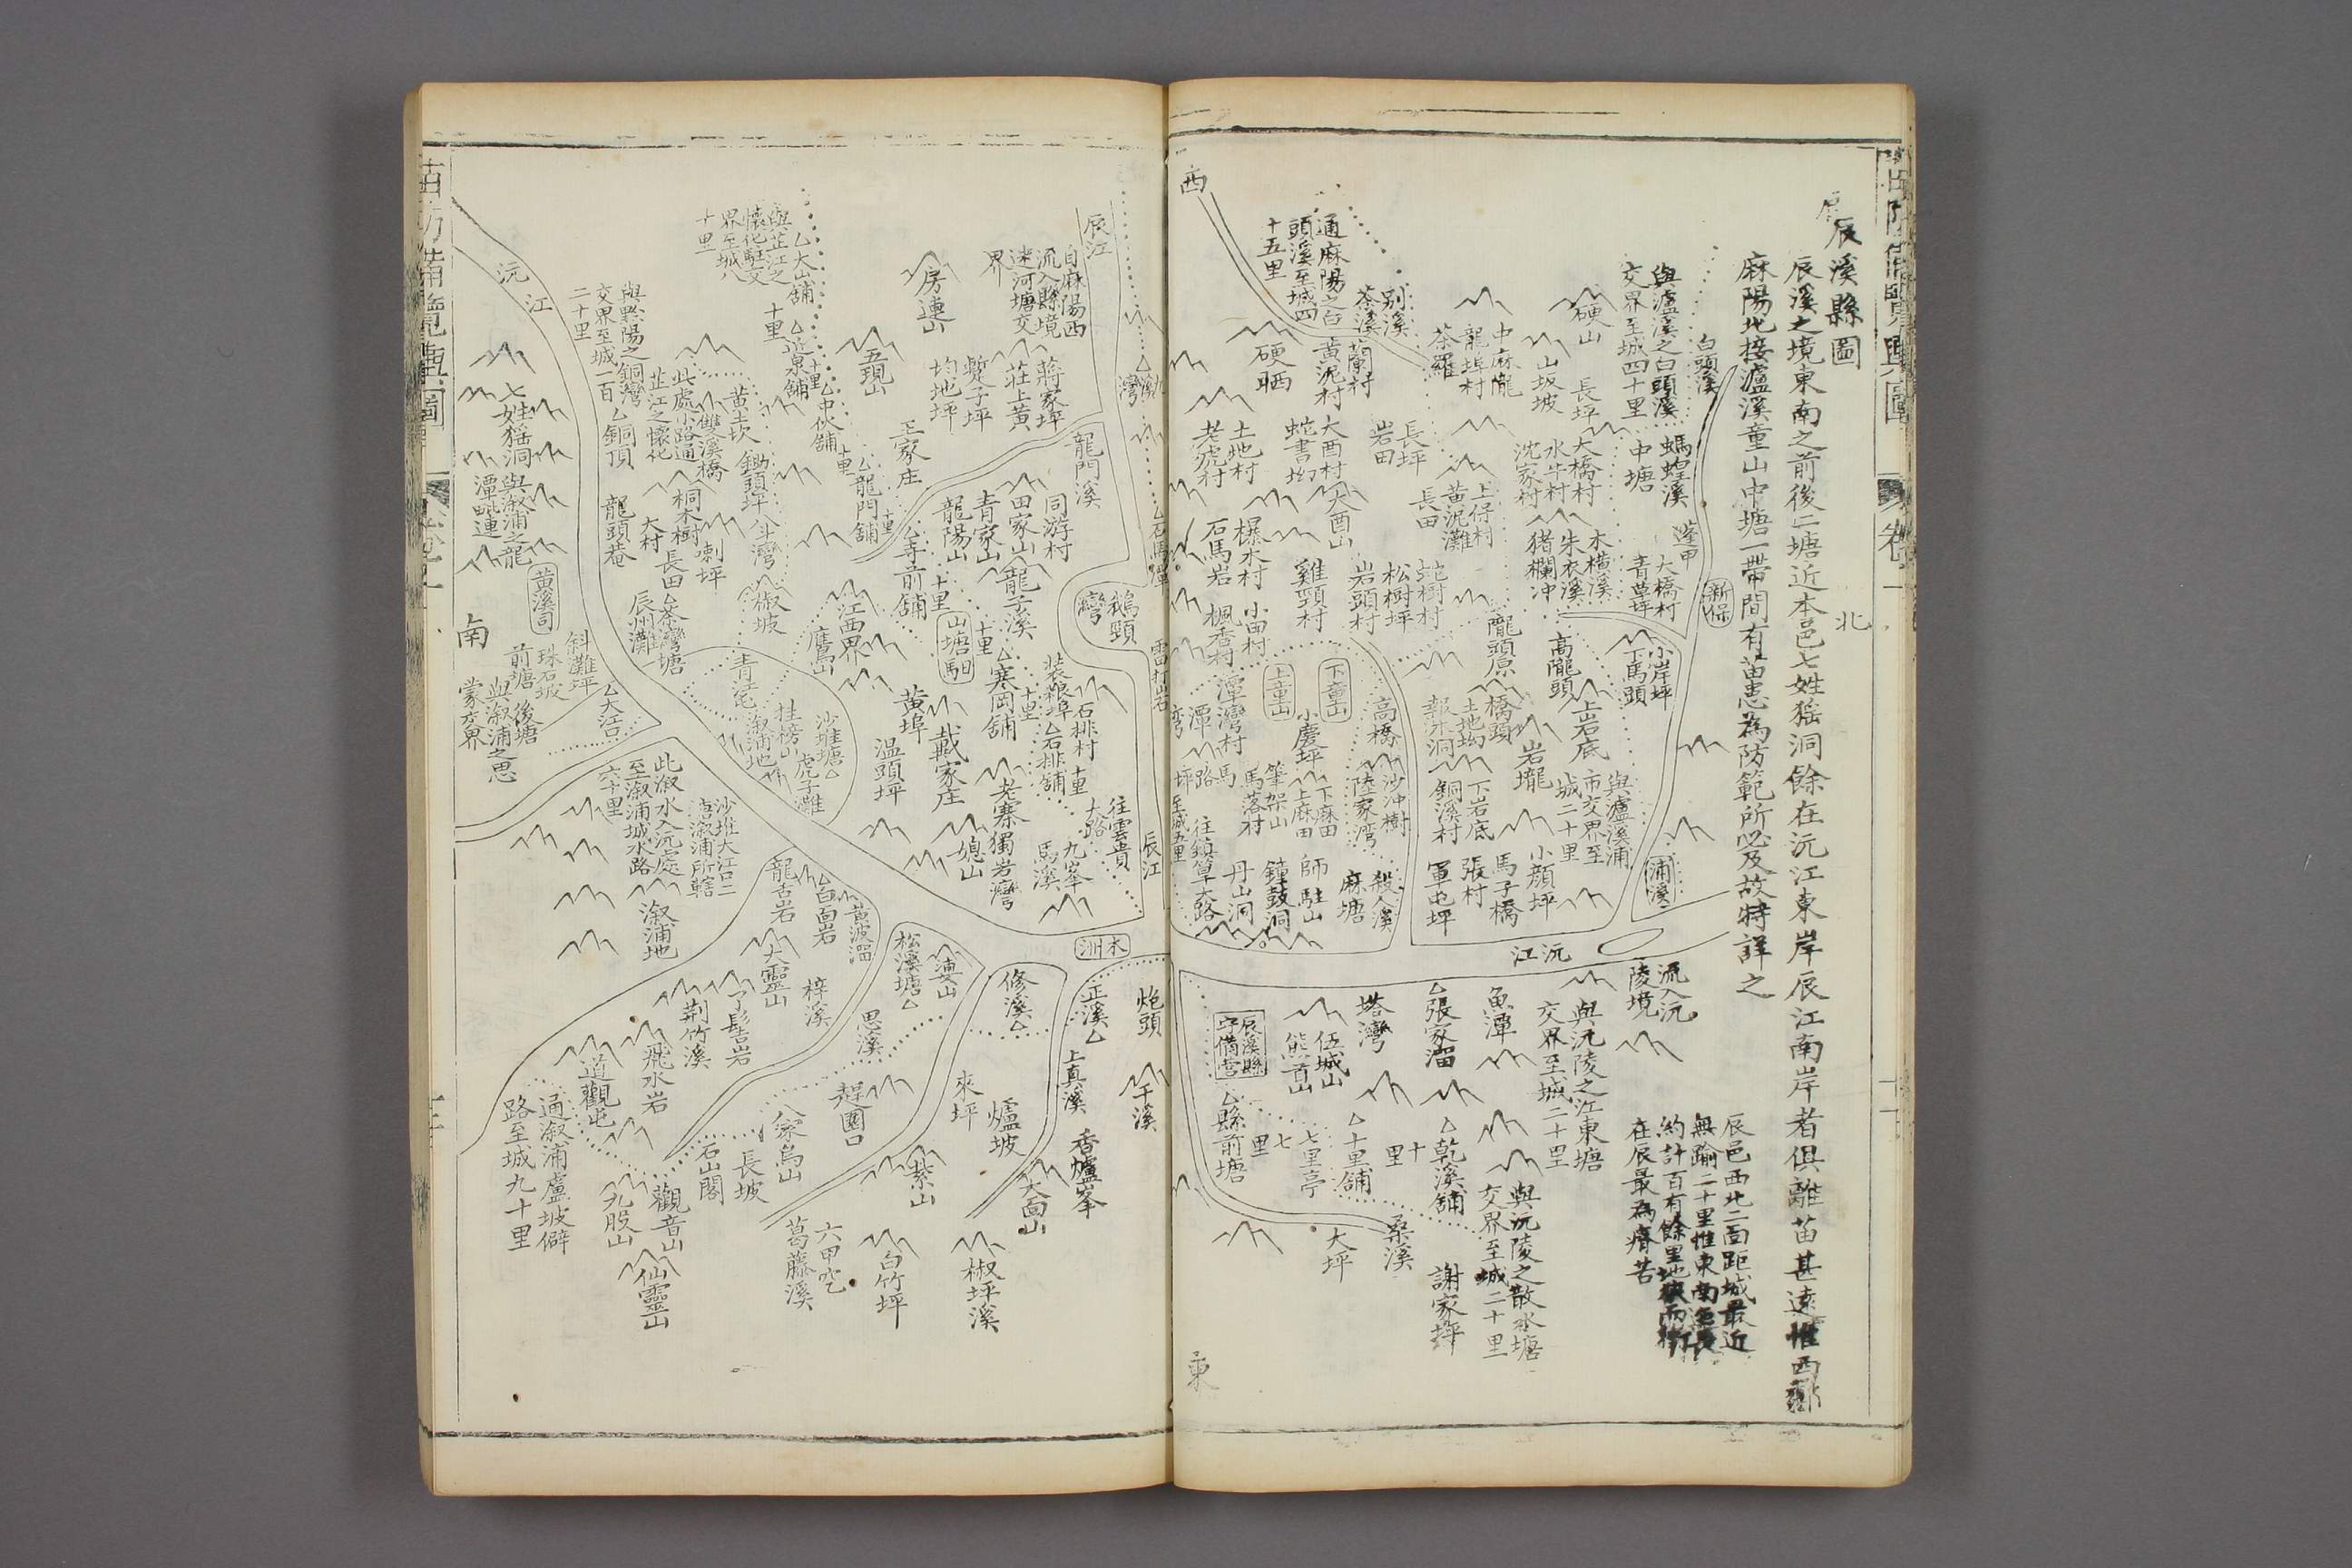 辰溪縣圖
辰溪之境東南之前後二塘近本邑七姓猺洞餘在沅江東岸辰江南岸者俱離苗甚遠惟西鄉
麻陽北接瀘溪童山中塘一帶間有苗患為防範所必及故特詳之
北
辰邑西北二面距城最近
無踰二十里惟東南
約計百有餘里地狹而
在辰最為瘠苦
白頭溪
與瀘溪之白頭溪
交界至城四十里
硬山
長坪
山坡坡
中麻隴
龍埠村
茶羅
別溪
茶溪
通麻陽之白
頭溪至城四
十五里
西
蘭村
黃泥村
硬晒
螞蝗溪
中塘
大橋村
水牛村
沈家村
長坪
岩田
大酉村
蛇書坳
土地村
老虎村
蓬甲
大橋村
青草坪
新保
木橫溪
朱衣溪
猪欄冲
上伄村
黃泥灘
長田
大酉山
楊木村
石馬岩
蛇樹村
松樹坪
岩頭村
雞頸村
小田村
楓香村
小岸坪
下馬頭
高隴頭
隴頭原
上岩底
橋頭
土地坳
報木洞
高橋
下童山
上童山
小慶坪
潭灣村
岩壠
與瀘溪浦
市交界至
城二十里
下岩底
銅溪村
沙冲樹
陸家灣
下麻田
上麻田
筆架山
馬落村
往鎮筸大路
至城五里
浦溪
小顏坪
馬子橋
張村
軍屯坪
殺人溪
麻塘
師駐山
鐘鼓洞
丹山洞
沅江
流入沅
陵境
與沅陵之江東塘
交界至城二十里
魚潭
張家溜
塔灣
伍城山
熊首山
辰溪縣
守備營
縣前塘
七里
七里亭
十里舖
十里
乾溪舖
與沅陵之散水塘
交界至城二十里
桑溪
大坪
謝家坪
東
辰江
自麻陽西
流入縣境
迷河塘交
界
房連山
大山舖
與芷江之
懷化駐交
界至城八
十里
沅江
與黔陽之銅灣
交界至城一百
二十里
銅頂
七姓猺洞
與漵浦之龍
潭毗連
蔣家坪
莊上黃
蹔子坪
均地坪
五現山
十里
近泉舖
十里
中伙舖
此處小路通
芷江之懷化
小雙溪橋
黃土坎
鋤頭坪
龍門溪
石馬潭
同游村
田家山
青家山
龍陽山
王家庄
十里
龍門舖
十里
寺前舖
八斗灣
椒坡
桐木樹
喇坪
大村
長田
龍頭菴
茶灣塘
辰州灘
黃溪司
南
鵝頸
灣
雷打岩
龍子溪
十里
山塘馹
十里
寒岡舖
江西界
鷹山
斜灘坪
珠石坡
前塘
後塘
與漵浦之思
蒙交界
大江口
裝粮埠
石排村
石排舖
十里
戴家庄
黃埠
溫頭坪
沙堆塘
桂榜山
虎子灘
漵浦地
往雲貴
大路
辰江
九峯
馬溪
老寨
獨岩灣
媳山
此漵水入沅處
至漵浦城水路
六十里
沙堆大江口二
唐漵浦所轄
漵浦地
木洲
白面岩
龍古岩
黃波溜
大靈山
梓溪
松溪塘
婆山
修溪
正溪
炮頭
干溪
上真溪
香爐峯
大面山
爐坡
來坪
思溪
趕圍口
紫山
丫髻岩
荆竹溪
飛水岩
道觀屯
通漵浦盧坡僻
路至城九十里
九股山
觀音山
仙靈山
石山閣
長坡
象烏山
六甲穵
葛藤溪
白竹坪
椒坪溪